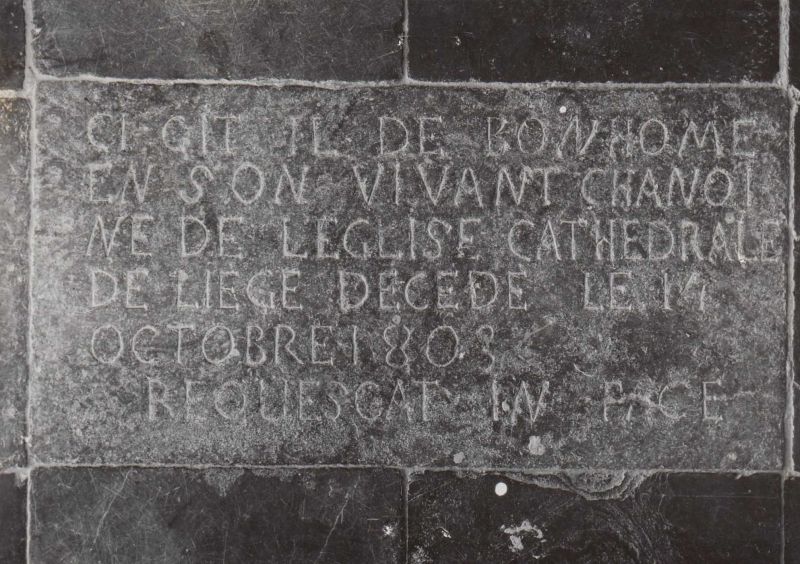 CI GIT IL DE BONHOME
EN SON VIVANT CHANOI
NE DE LEGLISE CATHEDRALE
DE LIEGE DECEDE LE 14
OCTOBRE 1803
REQUIESCAT IN PACE